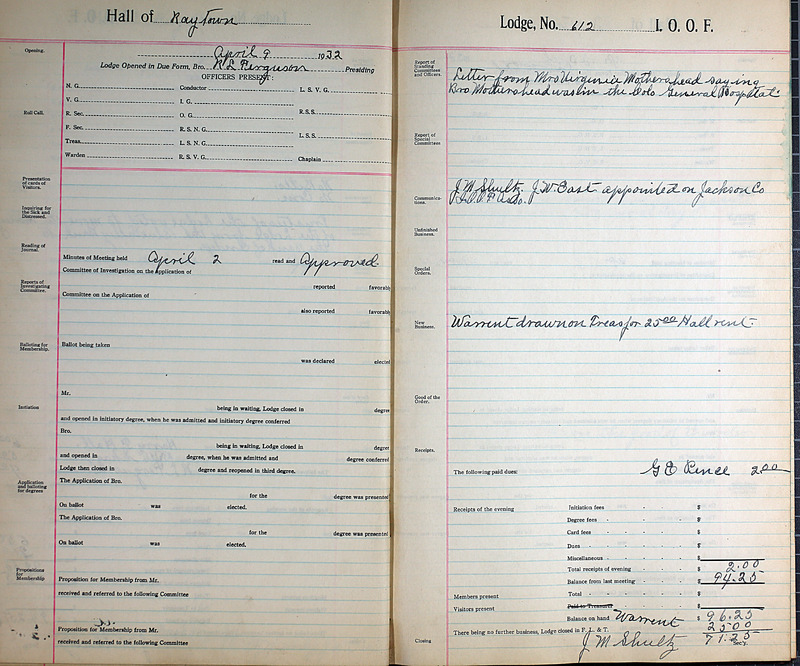 Hall of Raytown
Opening.
April 9 1932
Lodge Opened in Due Form, Bro. R L Ferguson Presiding
OFFICERS PRESENT:
Roll Call.
N. G. Conductor L. S. V. G.
V. G. I. G.
R. Sec. O. G. R.S.S.
F. Sec. R. S. N. G.
Treas. L. S. N. G. L.S.S.
Warden R. S. V. G. Chaplain
Presentation of cards of Visitors.
Inquiring for the Sick and Distressed.
Reading of Journal.
Minutes of Meeting held April 2 read and Approved
Committee of Investigation on the Application of
Reports of Investigating Committee.
reported favorab
Committee on the Application of
also reported favorab
Balloting for Membership.
Ballot being taken
was declared elected
Mr.
Initiation
being in waiting, Lodge closed in degree
and opened in initiatory degree, when he was admitted and initiatory degree conferred
Bro.
being in waiting, Lodge closed in degree
and opened in degree, when he was admitted and degree conferred
Lodge then closed in degree and reopened in third degree.
Application and balloting for degrees
The Application of Bro.
for the degree was presented
On ballot was elected.
The Application of Bro.
for the degree was presented
On ballot was elected.
Propositions for Membership
Proposition for Membership from Mr.
received and referred to the following Committee
Proposition for Membership from Mr.
received and referred to the following Committee
Lodge, No. 612 I. O. O. F.
Report of Standing Committees and Officers.
Letter from Mrs Virginia Mothershead saying
Bro Mothershead was in the Colo General Hospital
Report of Special Committees
Communications.
J M Shultz. J. W. East appointed on Jackson Co
I.O.O.F Asso.
Unfinished Business.
Special Orders.
New Business.
Warrent drawn on Treas for 25 00 Hall rent.
Good of the Order.
Receipts.
The following paid dues: G E Pence 2 00
Receipts of the evening Initiation fees $
Degree fees $
Card fees $
Dues $
Miscellaneous $
Total receipts of evening $ 2.00
Balance from last meeting $ 94.25
Members present Total $
Visitors present Paid to Treasurer $
Balance on hand Warrent $ 96.25
25 00
There being no further business, Lodge closed in F. L. & T. 71.25
Closing J M Shultz Sec'y.